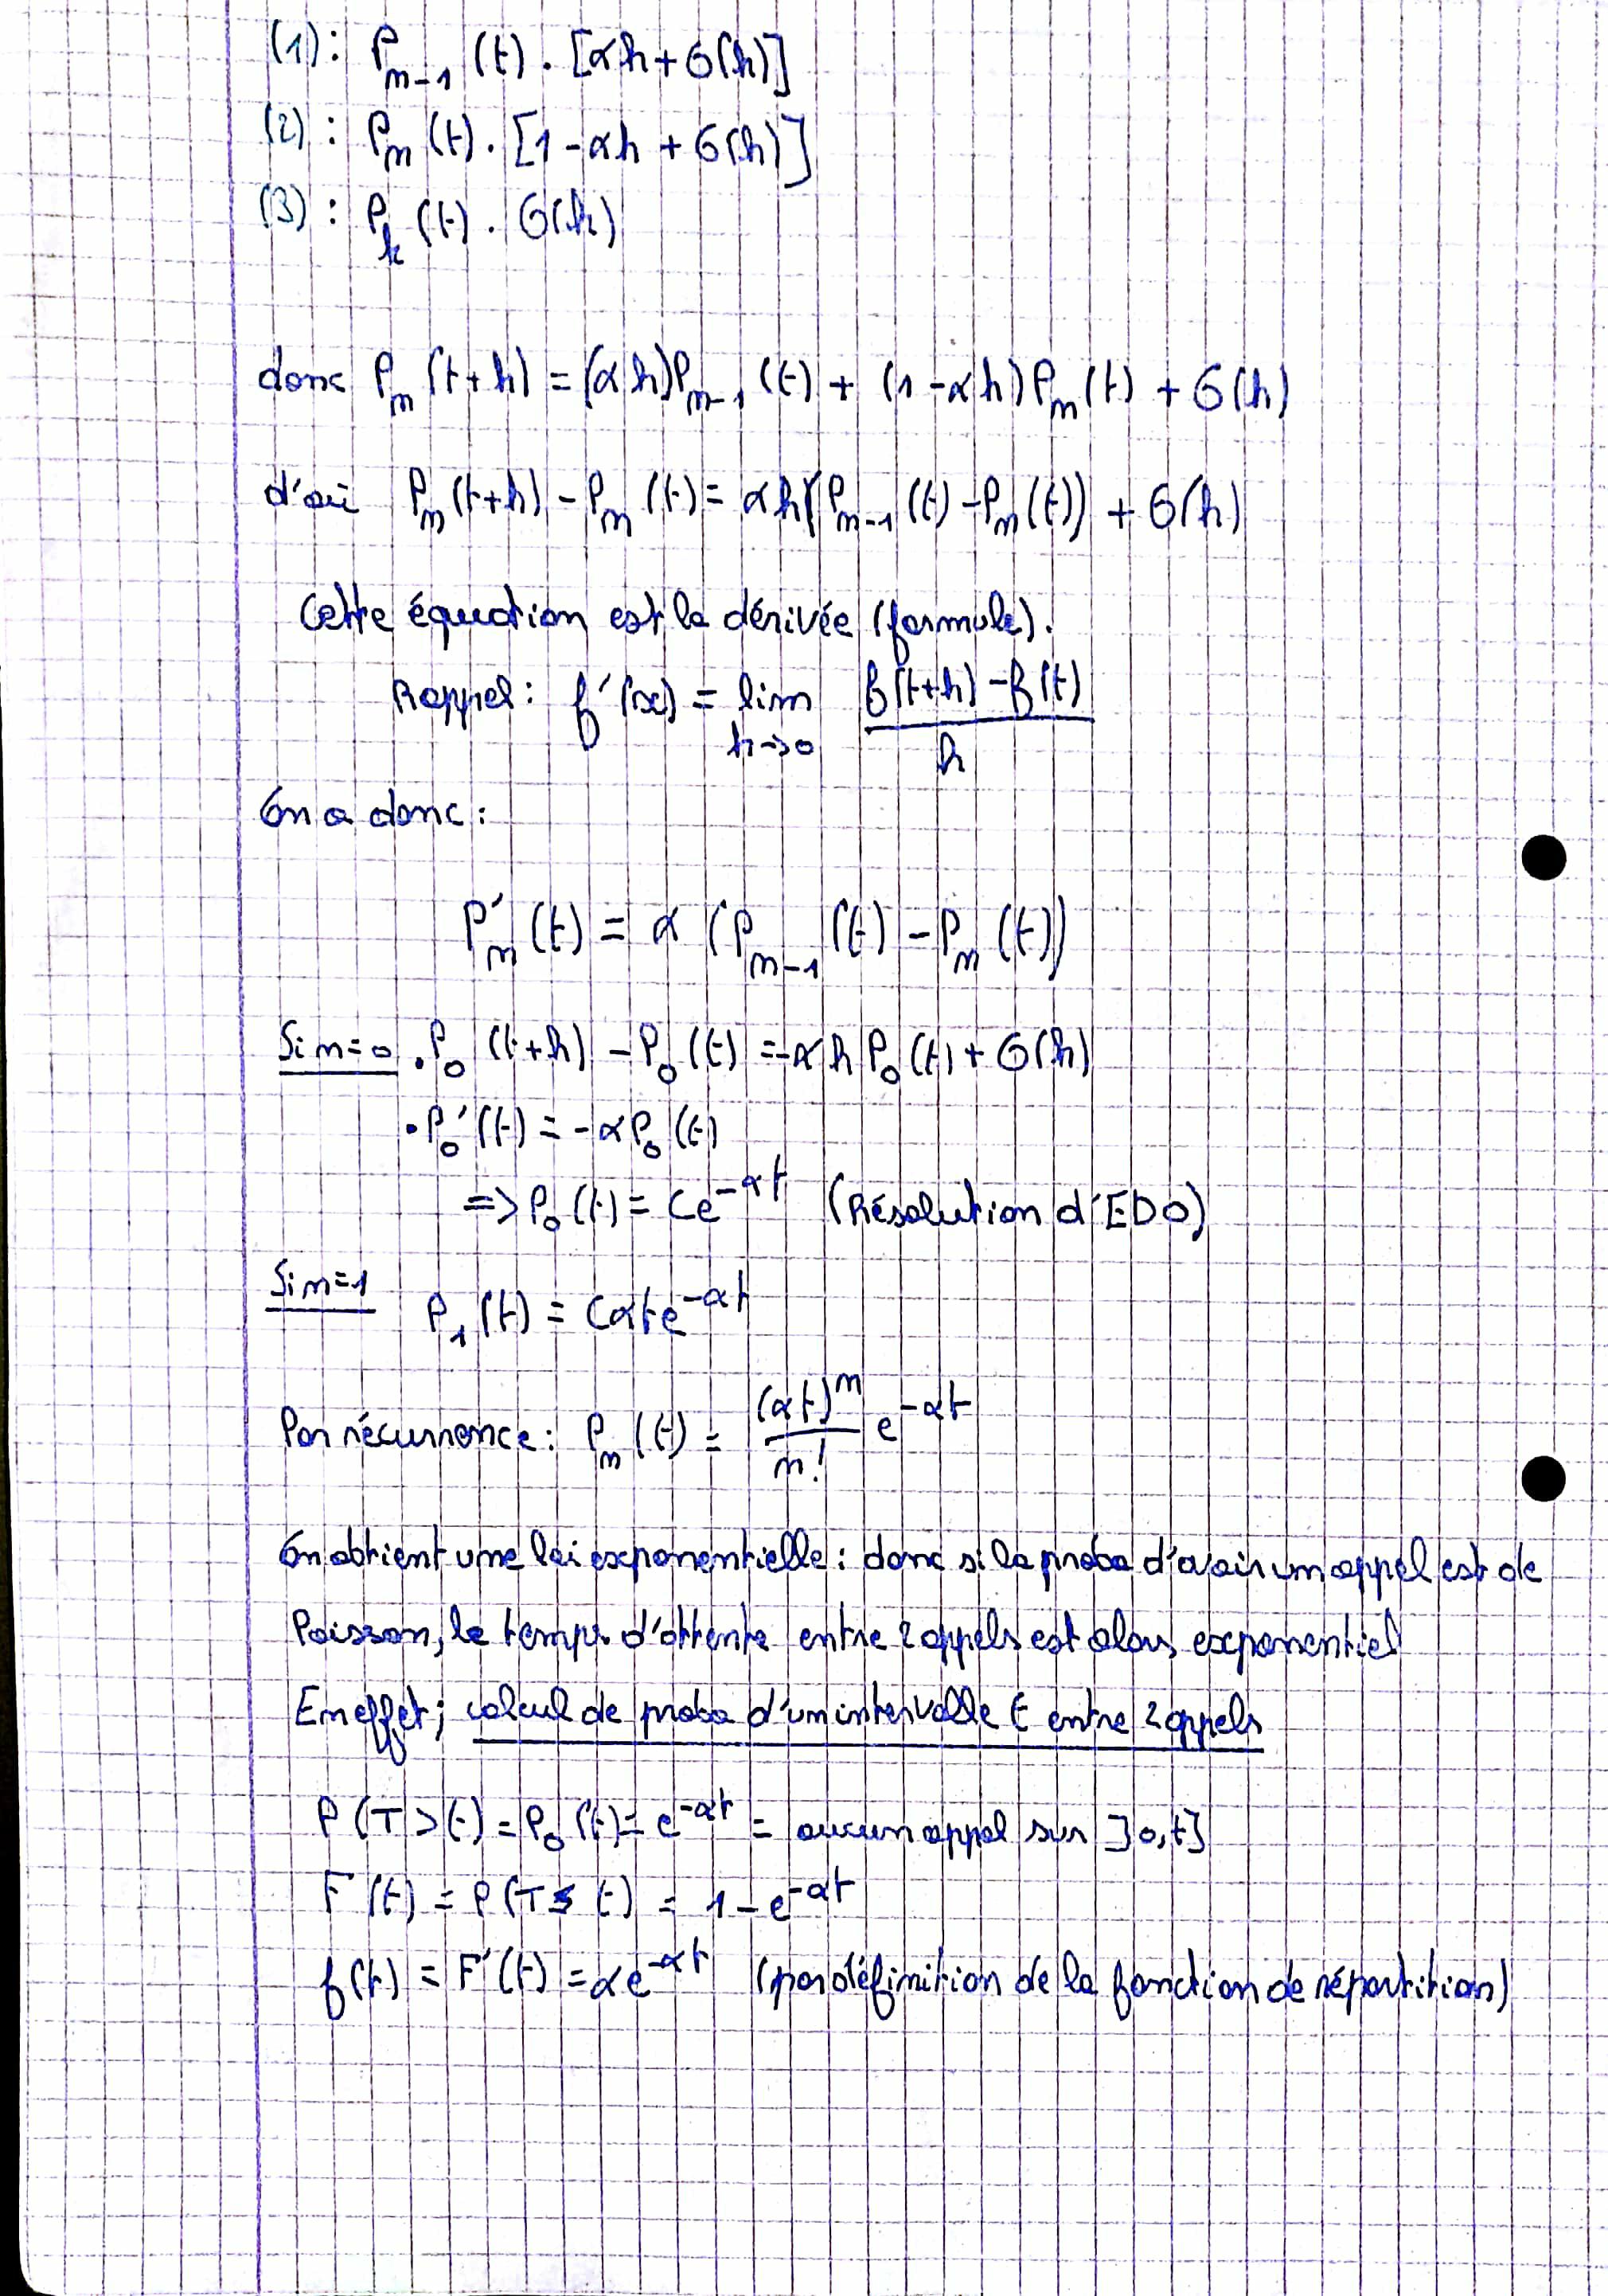 (1): P_{n-1}(t) . [αh + O(h)]
(2): P_n(t) . [1 - αh + O(h)]
(3): P_k(t) . O(h)
donc P_n(t+h) = (αh)P_{n-1}(t) + (1 - αh)P_n(t) + O(h)
d'où P_n(t+h) - P_n(t) = αh(P_{n-1}(t) - P_n(t)) + O(h)
Cette équation est la dérivée (formule).
Rappel: f'(x) = lim_{h->0} (f(t+h) - f(t)) / h
On a donc:
P'_n(t) = α (P_{n-1}(t) - P_n(t))
Si n=0 . P_0(t+h) - P_0(t) = -αh P_0(t) + O(h)
• P_0'(t) = -αP_0(t)
=> P_0(t) = Ce^{-αt} (Résolution d'EDO)
Si n=1 P_1(t) = Cαte^{-αt}
Par récurrence: P_n(t) = (αt)^n / n! e^{-αt}
On obtient une loi exponentielle: donc si la proba d'avoir un appel est de
Poisson, le temps d'attente entre 2 appels est alors exponentiel
En effet; calcul de proba d'un intervalle t entre 2 appels
P(T > t) = P_0(t) = e^{-αt} = aucun appel sur ]0,t]
F(t) = P(T ≤ t) = 1 - e^{-αt}
f(t) = F'(t) = αe^{-αt} (par définition de la fonction de répartition)